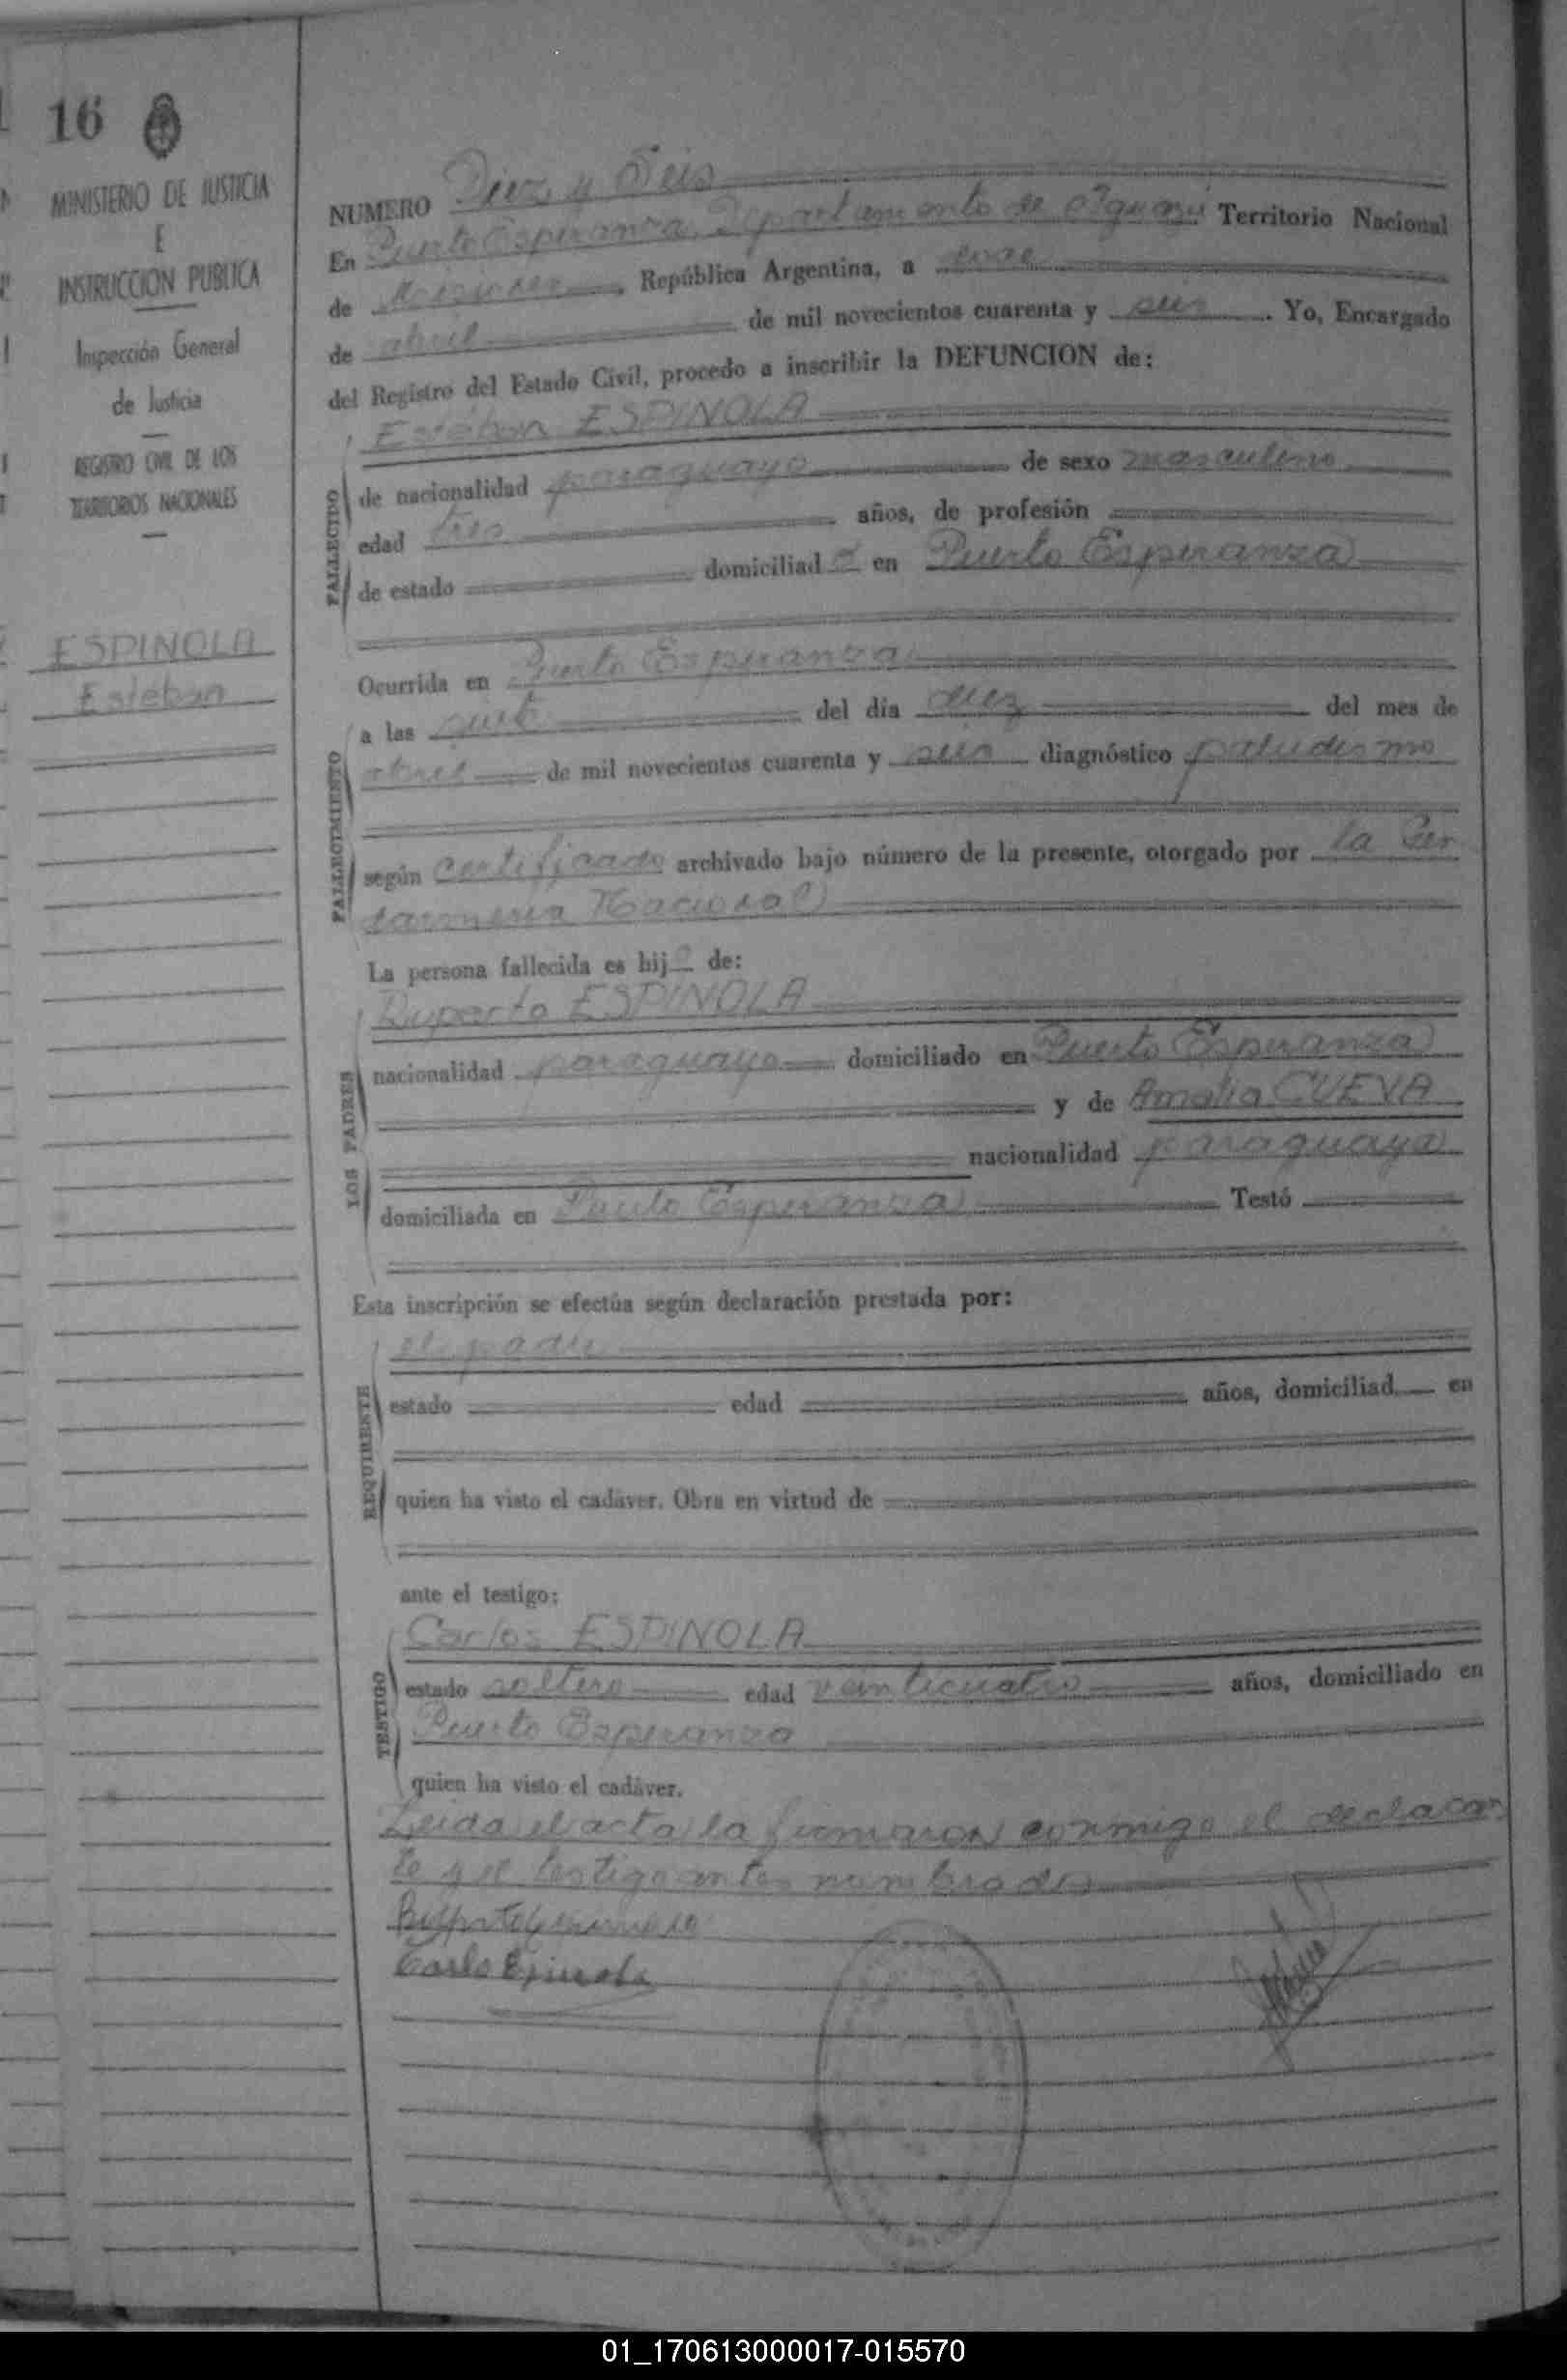 16
MINISTERIO DE JUSTICIA
E
INSTRUCCION PUBLICA
Inspección General
de Justicia
REGISTRO CIVIL DE LOS
TERRITORIOS NACIONALES
ESPINOLA
Esteban
NUMERO Diez y Seis
En Puerto Esperanza, Departamento de Iguazú Territorio Nacional
de Misiones República Argentina, a doce
de abril de mil novecientos cuarenta y seis. Yo, Encargado
del Registro del Estado Civil, procedo a inscribir la DEFUNCION de:
FALLECIDO
Esteban ESPINOLA
de nacionalidad paraguayo de sexo masculino
edad tres años, de profesión
de estado domiciliado en Puerto Esperanza
Ocurrida en Puerto Esperanza
FALLECIMIENTO
a las siete del día diez del mes de
abril de mil novecientos cuarenta y seis diagnóstico paludismo
según certificado archivado bajo número de la presente, otorgado por la Gen
darmeria Nacional
La persona fallecida es hijo de:
LOS PADRES
Ruperto ESPINOLA
nacionalidad paraguayo domiciliado en Puerto Esperanza
y de Amalia CUEVA
nacionalidad paraguaya
domiciliada en Puerto Esperanza Testó
Esta inscripción se efectúa según declaración prestada por:
REQUIRENTE
el padre
estado edad años, domiciliad en
quien ha visto el cadáver. Obra en virtud de
ante el testigo:
TESTIGO
Carlos ESPINOLA
estado soltero edad veinticuatro años, domiciliado en
Puerto Esperanza
quien ha visto el cadáver.
Leida el acta la firmaron conmigo el declaran
te y el testigo antes nombrados
Carlo Espinola
01_170613000017-015570